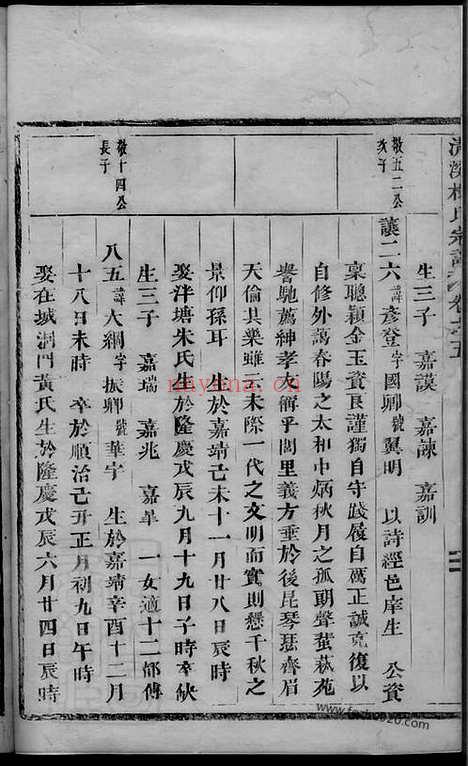 生三子 嘉謨 嘉諫 嘉訓
敬五二公
次子
議二六諱彥登字國卿號翼明 以詩經邑庠生 公資
稟聰穎金玉資良謹獨自守踐履自礪正誠克復以
自修外藹春陽之太和中炳秋月之孤朗聲蜚萩苑
譽馳薦紳孝友稱乎閭里義方垂於後昆琴瑟齊眉
天倫具樂雖云未際一代之文明而實則懸千秋之
景仰孫耳 生於嘉靖己未十一月廿八日辰時
娶泮塘朱氏生於隆慶戊辰九月十九日子時卒缺
生三子 嘉瑞 嘉兆 嘉 一女適十二都傅
敬十四公
長子
八五諱大綱字振卿號華宇 生於嘉靖辛酉十二月
十八日未時 卒於順治己丑正月初九日午時
娶在城洞門黃氏生於隆慶戊辰六月廿四日辰時
nnyana.cn
www.fozhu920.com